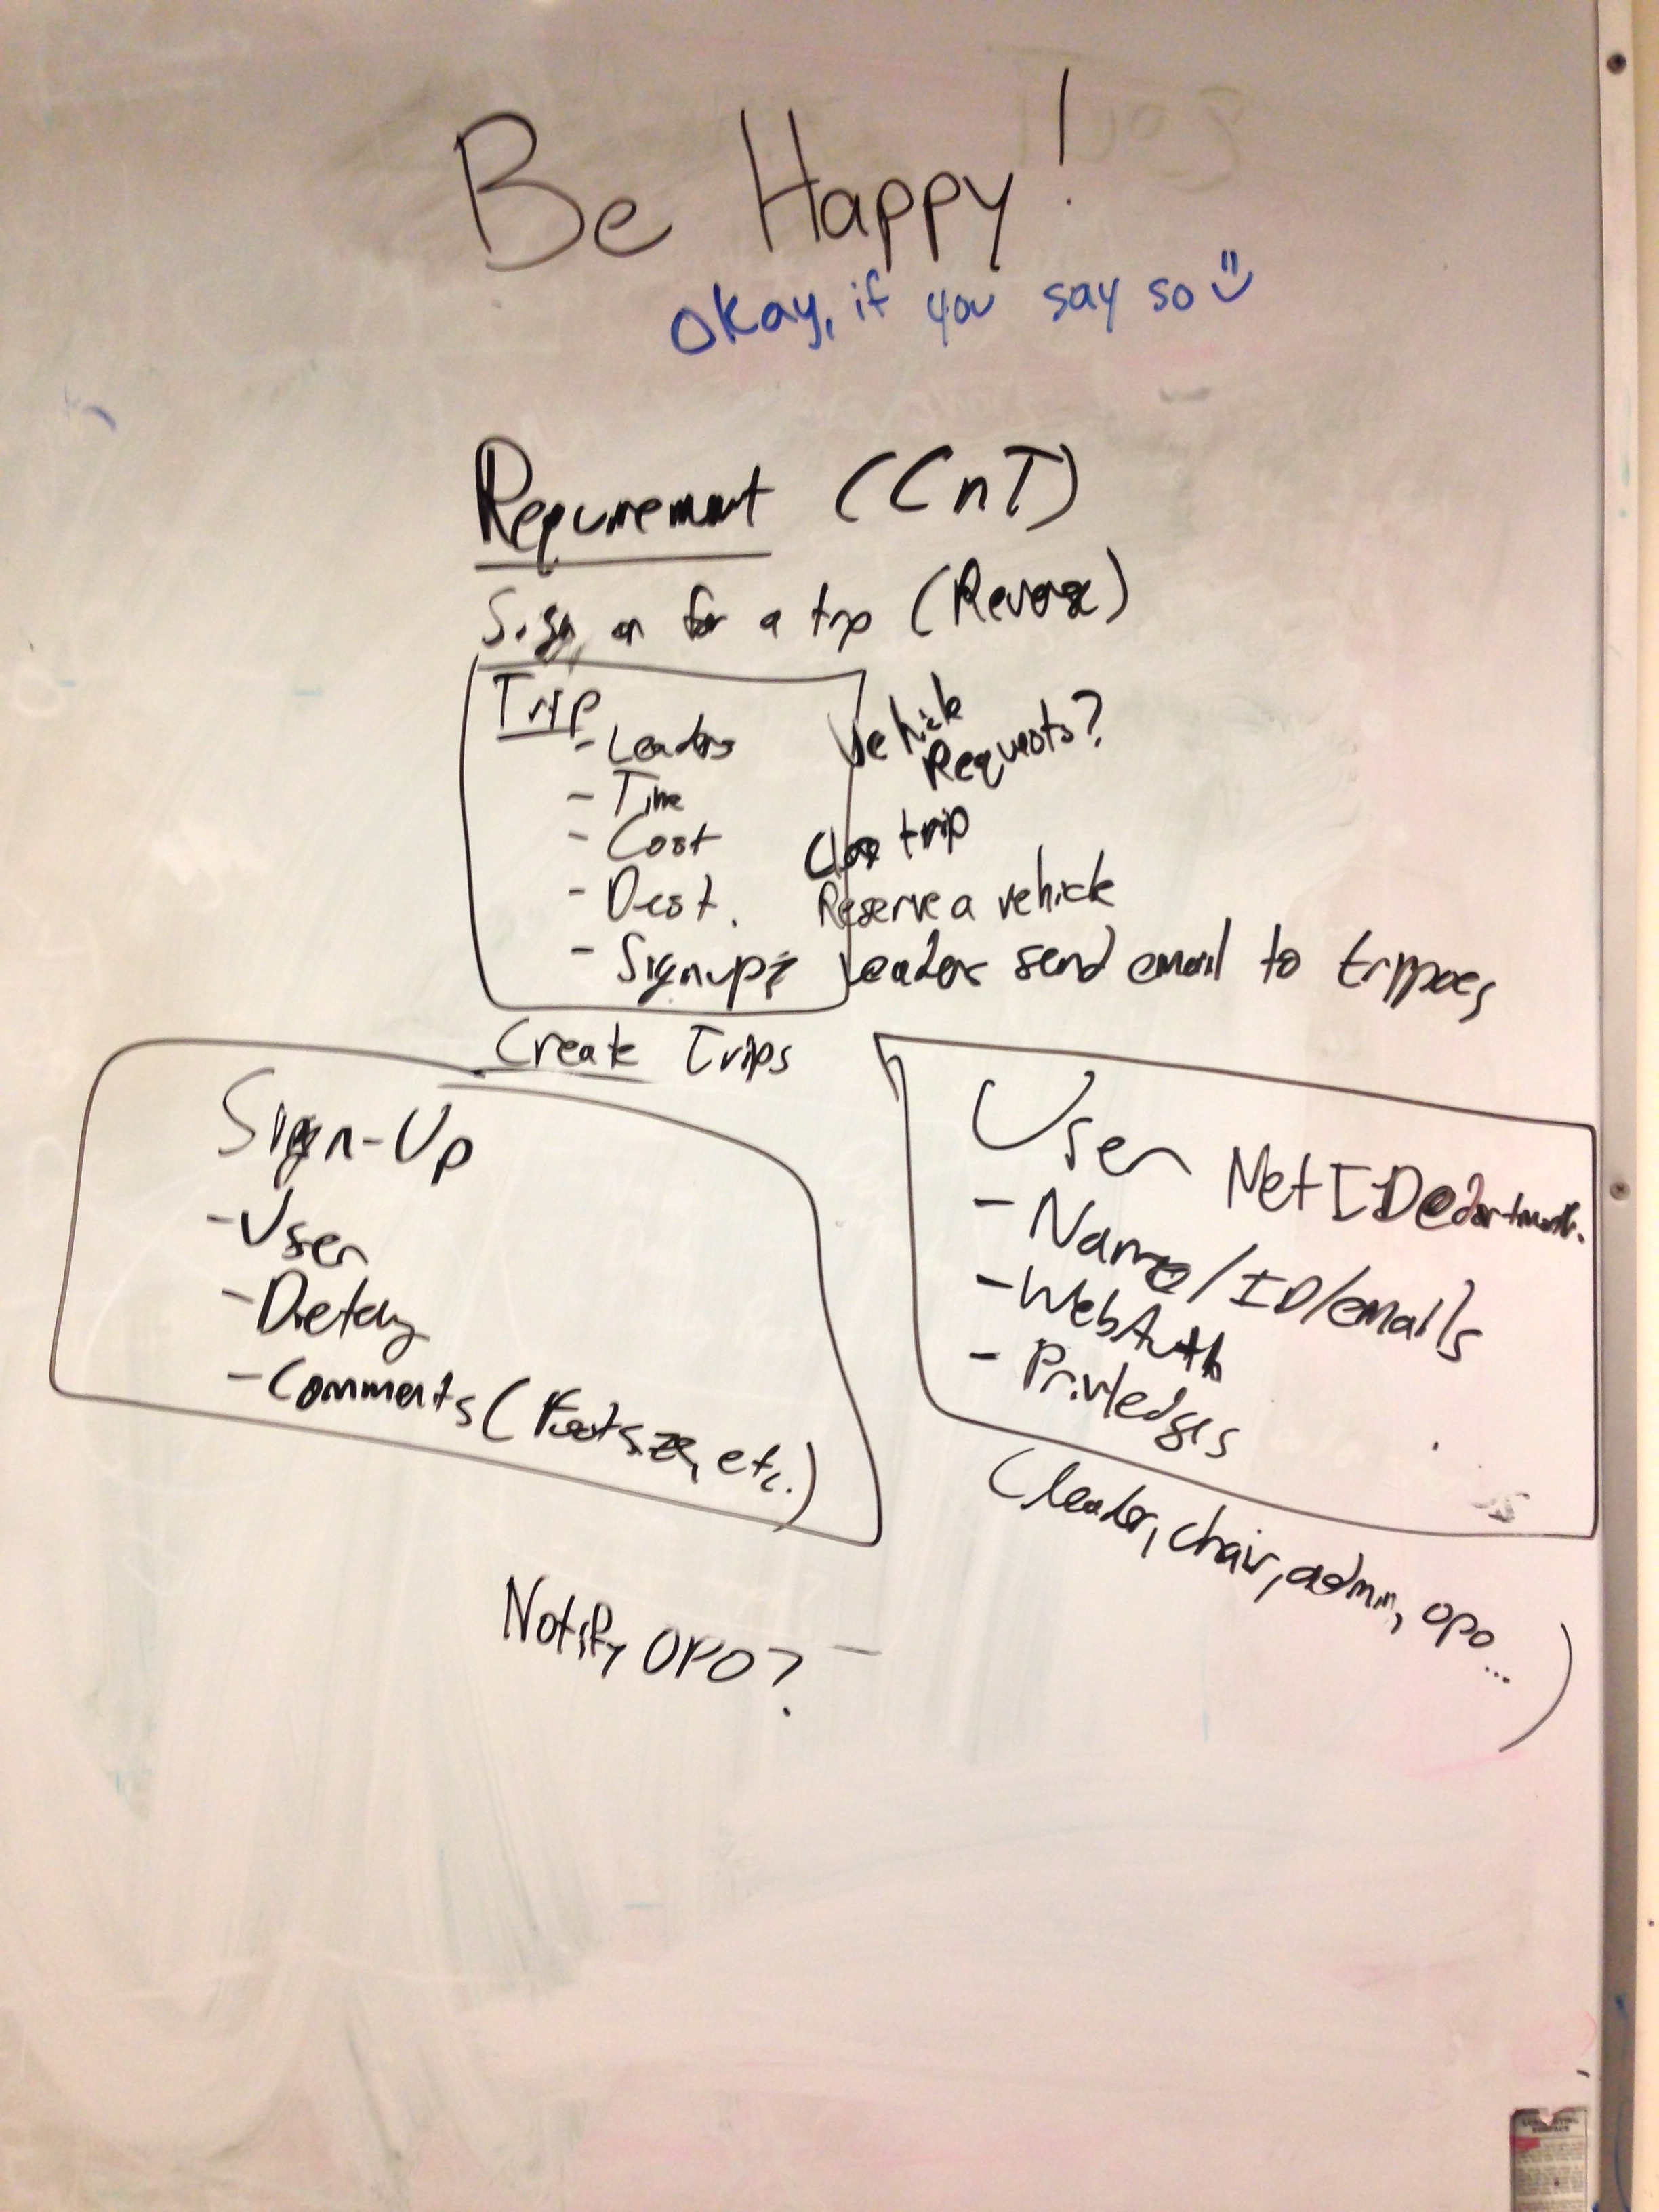 Be Happy!
Okay, if you say so
Requirement (CnT)
Sign on for a trip (Reverse)
Trip
- Leaders
- Time
- Cost
- Dest.
- Signups
Vehicle Requests?
trip
Reserve a vehicle
leader send email to trippees
Create Trips
Sign-Up
- User
- Dietary
- Comments (
etc.)
User NetID
- Name/ID/emails
-
- Privledges
(leader, chair, admin, opo
... )
Notify OPO? -